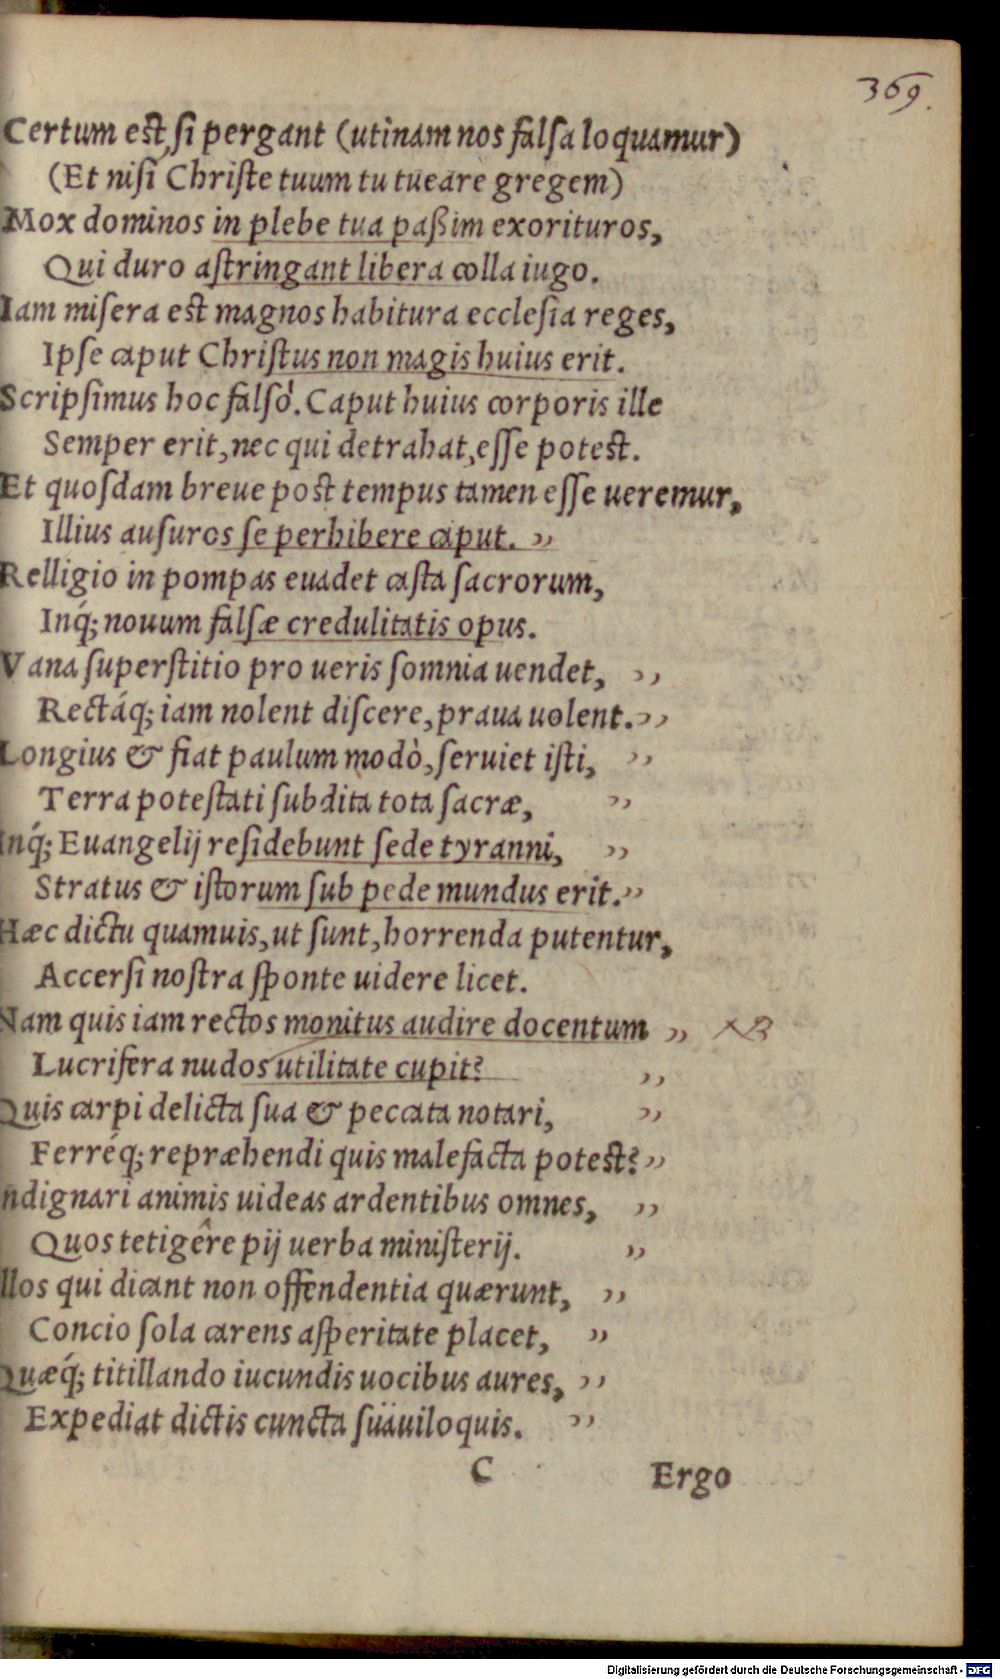 369.
Certum est, si pergant (utinam nos falsa loquamur)
(Et nisi Christe tuum tu tueare gregem)
Mox dominos in plebe tua paßim exorituros,
Qui duro astringant libera colla iugo.
Iam misera est magnos habitura ecclesia reges,
Ipse caput Christus non magis huius erit.
Scripsimus hoc falsò. Caput huius corporis ille
Semper erit, nec qui detrahat, esse potest.
Et quosdam breue post tempus tamen esse ueremur,
Illius ausuros se perhibere caput. „
Relligio in pompas euadet casta sacrorum,
Inq́; nouum falsæ credulitatis opus.
Vana superstitio pro ueris somnia uendet, „
Rectáq; iam nolent discere, praua uolent. „
Longius & fiat paulum modò, seruiet isti, „
Terra potestati subdita tota sacræ, „
Inq́; Euangelij residebunt sede tyranni, „
Stratus & istorum sub pede mundus erit. „
Hæc dictu quamuis, ut sunt, horrenda putentur,
Accersi nostra sponte uidere licet.
Nam quis iam rectos monitus audire docentum „ NB
Lucrifera nudos utilitate cupit? „
Quis carpi delicta sua & peccata notari, „
Ferréq; repræhendi quis malefacta potest? „
ndignari animis uideas ardentibus omnes, „
Quos tetigêre pij uerba ministerij. „
llos qui dicant non offendentia quærunt, „
Concio sola carens asperitate placet, „
Quæq́; titillando iucundis uocibus aures, „
Expediat dictis cuncta suäuiloquis. „
C Ergo
Digitalisierung gefördert durch die Deutsche Forschungsgemeinschaft - DFG